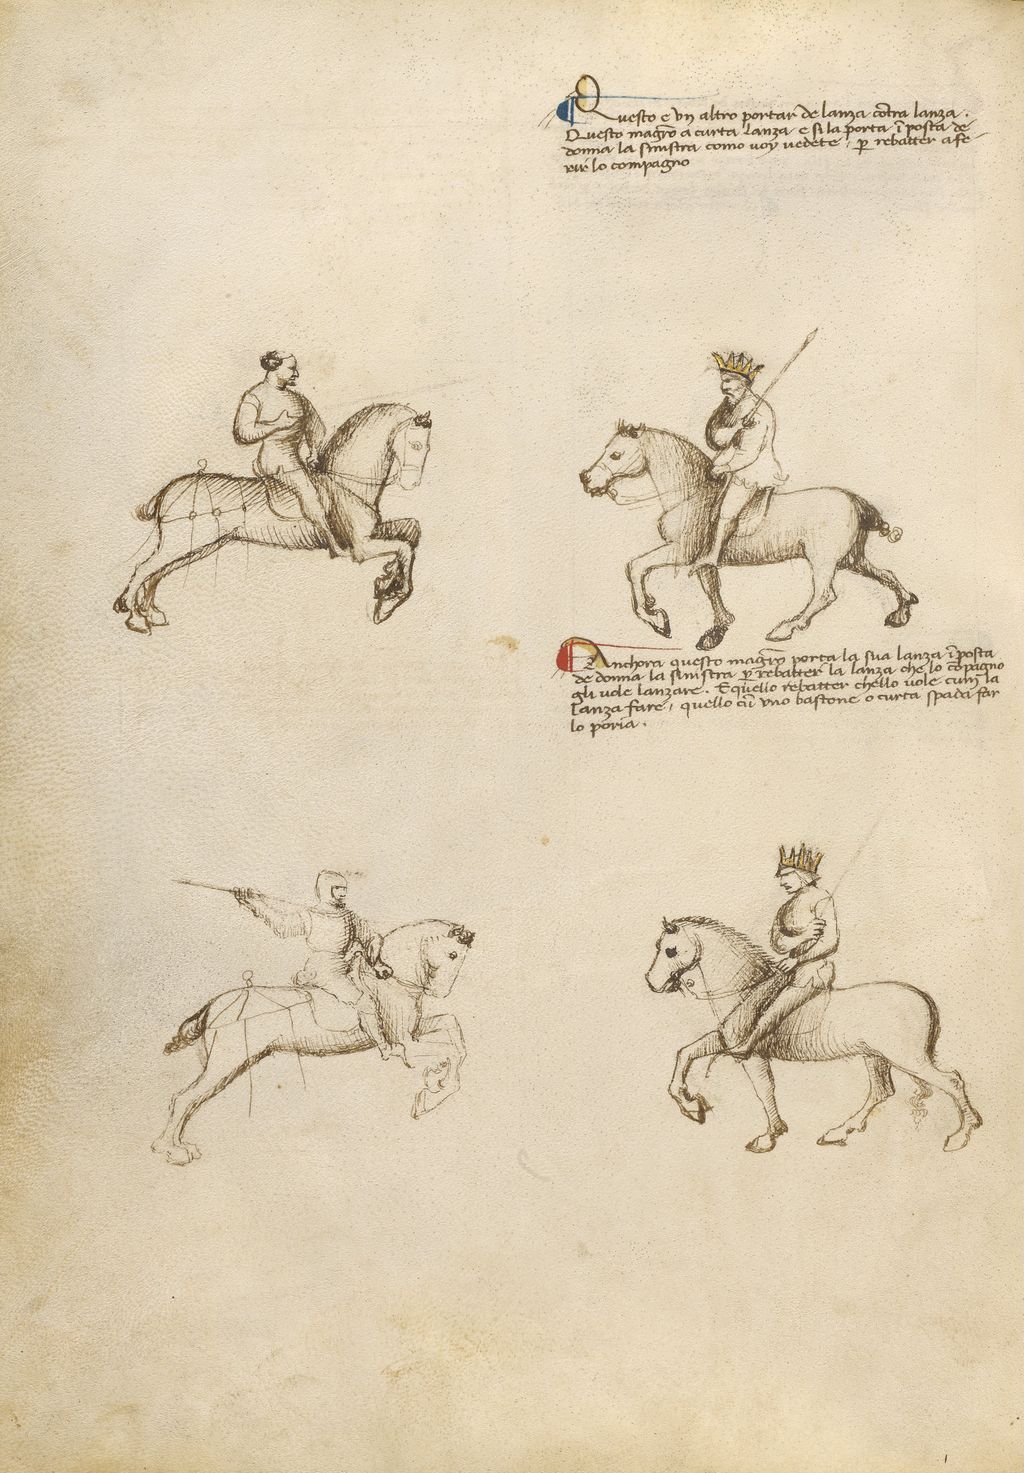 Questo e un altro portar de lanza cōtra lanza.
Questo magrō a curta lanza e si la porta ī posta de
donna la sinistra como voy vedete, ꝑ rebatter a fe
rir lo compagno
Anchora questo magrō porta la sua lanza ī posta
de donna la sinistra ꝑ rebatter la lanza che lo cōpagno
gli vole lanzare. E quello rebatter chello vole cum la
lanza fare, quello cū uno bastone o curta spada far
lo poria.